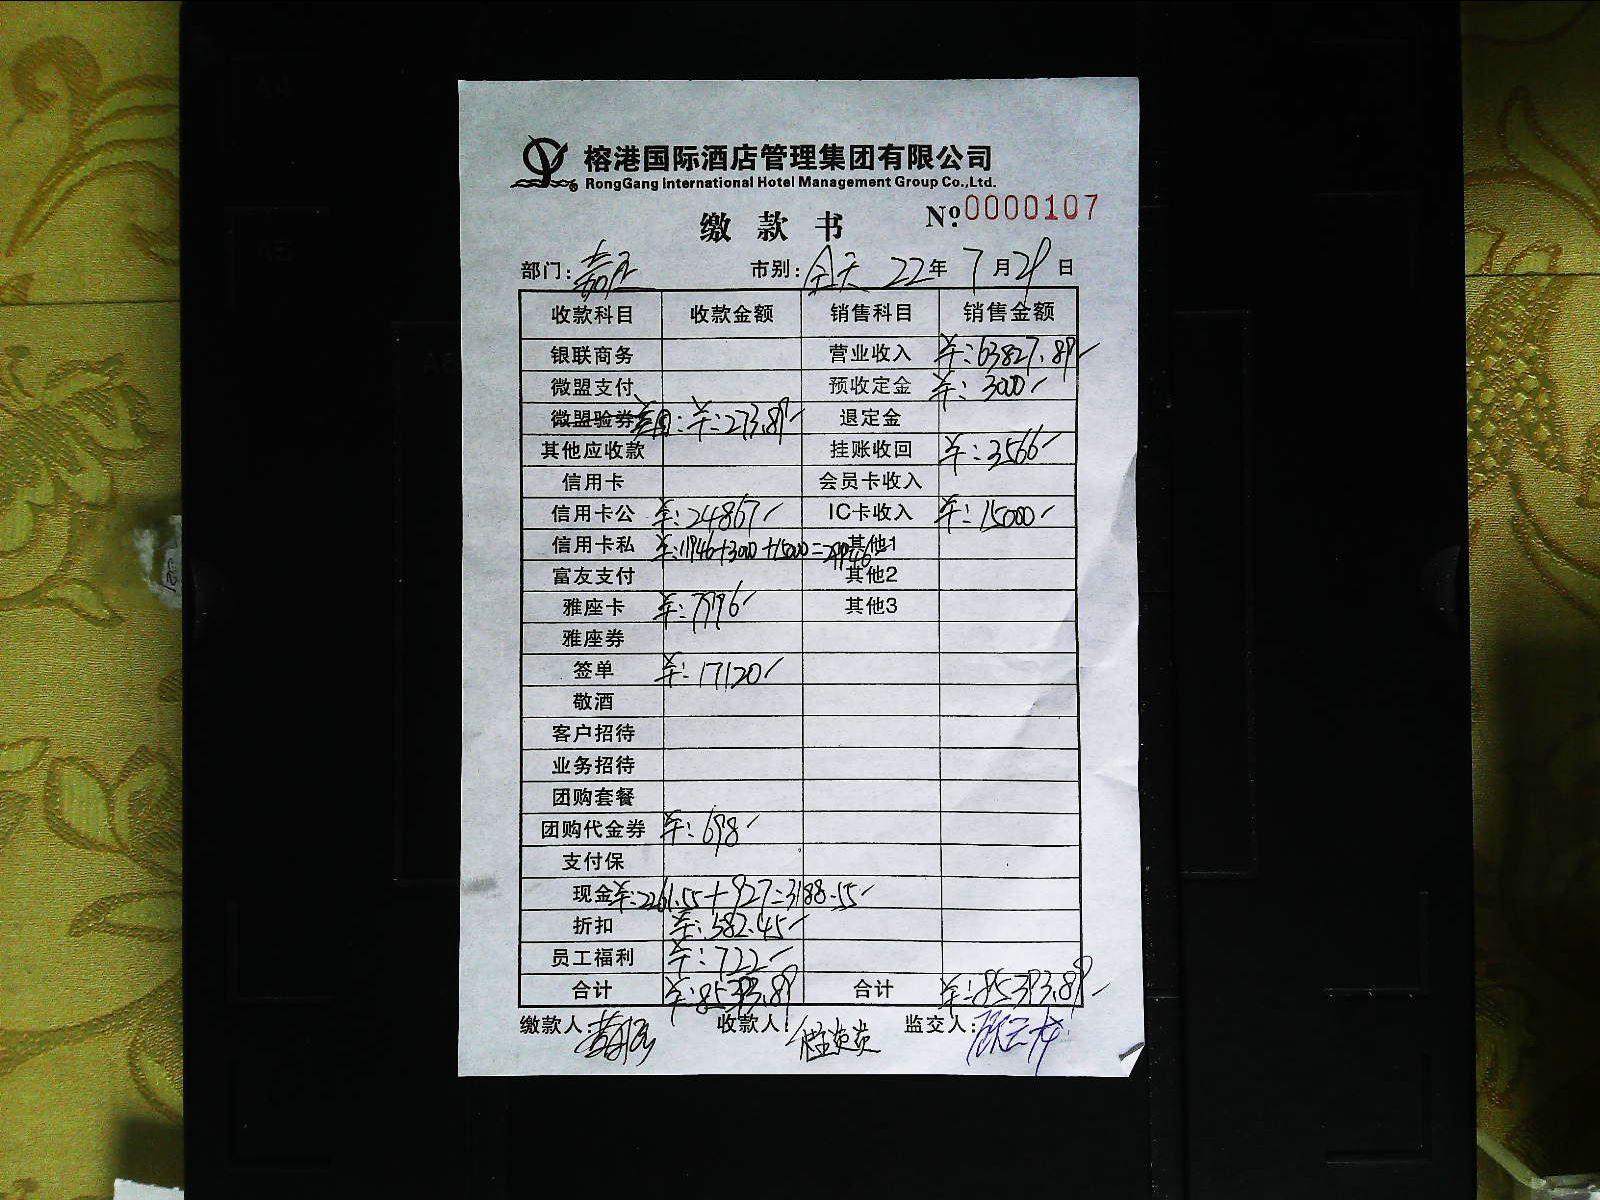 榕港国际酒店管理集团有限公司
RongGang International Hotel Management Group Co.,Ltd.
缴款书 No.0000107
部门: 市别:全天 22年7月29日
收款科目 收款金额 销售科目 销售金额
银联商务 营业收入 ¥:63827.89
微盟支付 预收定金 ¥:3000
微盟验券 美团:¥:273.89 退定金
其他应收款 挂账收回 ¥:3566
信用卡 会员卡收入
信用卡公 ¥:24867 IC卡收入 ¥:15000
信用卡私 ¥:11946+3000+15000=29946 其他1
富友支付 其他2
雅座卡 ¥:7996 其他3
雅座券
签单 ¥:17120
敬酒
客户招待
业务招待
团购套餐
团购代金券 ¥:698
支付保
现金 ¥:2261.55+927=3188.55
折扣 ¥:582.45
员工福利 ¥:722
合计 ¥:85393.89 合计 ¥:85393.89
缴款人: 收款人: 监交人: